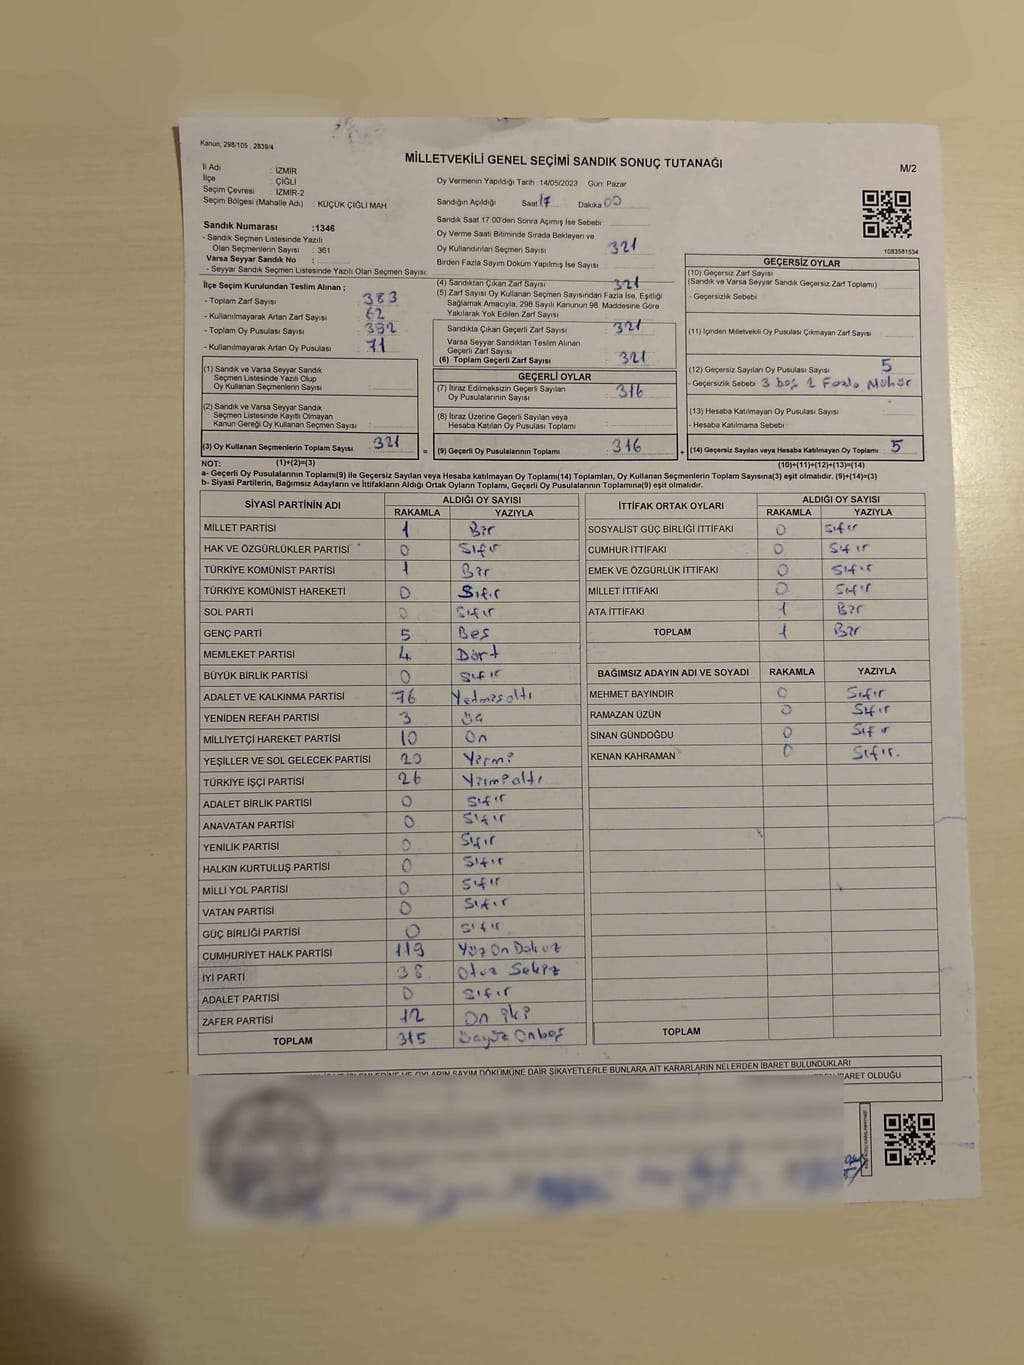 Kanun; 298/105 , 2839/4
MİLLETVEKİLİ GENEL SEÇİMİ SANDIK SONUÇ TUTANAĞI
M/2
İl Adı : İZMİR
İlçe : ÇİĞLİ
Seçim Çevresi : İZMİR-2
Seçim Bölgesi (Mahalle Adı) : KÜÇÜK ÇİĞLİ MAH
Sandık Numarası :1346
- Sandık Seçmen Listesinde Yazılı
Olan Seçmenlerin Sayısı : 361
Varsa Seyyar Sandık No :
- Seyyar Sandık Seçmen Listesinde Yazılı Olan Seçmen Sayısı:
Oy Vermenin Yapıldığı Tarih :14/05/2023 Gün: Pazar
Sandığın Açıldığı Saat 17 Dakika 00
Sandık Saat 17.00'den Sonra Açımış İse Sebebi
Oy Verme Saati Bitiminde Sırada Bekleyen ve
Oy Kullandırılan Seçmen Sayısı 321
Birden Fazla Sayım Döküm Yapılmış İse Sayısı
1083581534
İlçe Seçim Kurulundan Teslim Alınan ;
- Toplam Zarf Sayısı 383
- Kullanılmayarak Artan Zarf Sayısı 62
- Toplam Oy Pusulası Sayısı 392
- Kullanılmayarak Artan Oy Pusulası 71
(1) Sandık ve Varsa Seyyar Sandık
Seçmen Listesinde Yazılı Olup
Oy Kullanan Seçmenlerin Sayısı
(2) Sandık ve Varsa Seyyar Sandık
Seçmen Listesinde Kayıtlı Olmayan
Kanun Gereği Oy Kullanan Seçmen Sayısı
(3) Oy Kullanan Seçmenlerin Toplam Sayısı 321
(4) Sandıktan Çıkan Zarf Sayısı 321
(5) Zarf Sayısı Oy Kullanan Seçmen Sayısından Fazla İse, Eşitliği
Sağlamak Amacıyla, 298 Sayılı Kanunun 98. Maddesine Göre
Yakılarak Yok Edilen Zarf Sayısı
Sandıkta Çıkan Geçerli Zarf Sayısı 321
Varsa Seyyar Sandıktan Teslim Alınan
Geçerli Zarf Sayısı
(6) Toplam Geçerli Zarf Sayısı 321
GEÇERLİ OYLAR
(7) İtiraz Edilmeksizin Geçerli Sayılan
Oy Pusulalarının Sayısı 316
(8) İtiraz Üzerine Geçerli Sayılan veya
Hesaba Katılan Oy Pusulası Toplamı
= (9) Geçerli Oy Pusulalarının Toplamı 316
GEÇERSİZ OYLAR
(10) Geçersiz Zarf Sayısı
(Sandık ve Varsa Seyyar Sandık Geçersiz Zarf Toplamı)
- Geçersizlik Sebebi
(11) İçinden Milletvekili Oy Pusulası Çıkmayan Zarf Sayısı
(12) Geçersiz Sayılan Oy Pusulası Sayısı 5
- Geçersizlik Sebebi 3 boş 2 Fazla Mühür
(13) Hesaba Katılmayan Oy Pusulası Sayısı
- Hesaba Katılmama Sebebi
+ (14) Geçersiz Sayılan veya Hesaba Katılmayan Oy Toplamı 5
NOT: (1)+(2)=(3)
(10)+(11)+(12)+(13)=(14)
a- Geçerli Oy Pusulalarının Toplamı(9) ile Geçersiz Sayılan veya Hesaba katılmayan Oy Toplamı(14) Toplamları, Oy Kullanan Seçmenlerin Toplam Sayısına(3) eşit olmalıdır. (9)+(14)=(3)
b- Siyasi Partilerin, Bağımsız Adayların ve İttifakların Aldığı Ortak Oyların Toplamı, Geçerli Oy Pusulalarının Toplamına(9) eşit olmalıdır.
SİYASİ PARTİNİN ADI ALDIĞI OY SAYISI
RAKAMLA YAZIYLA
MİLLET PARTİSİ 1 Bir
HAK VE ÖZGÜRLÜKLER PARTİSİ 0 Sıfır
TÜRKİYE KOMÜNİST PARTİSİ 1 Bir
TÜRKİYE KOMÜNİST HAREKETİ 0 Sıfır
SOL PARTİ 0 Sıfır
GENÇ PARTİ 5 Beş
MEMLEKET PARTİSİ 4 Dört
BÜYÜK BİRLİK PARTİSİ 0 Sıfır
ADALET VE KALKINMA PARTİSİ 76 Yetmişaltı
YENİDEN REFAH PARTİSİ 3 Üç
MİLLİYETÇİ HAREKET PARTİSİ 10 On
YEŞİLLER VE SOL GELECEK PARTİSİ 20 Yirmi
TÜRKİYE İŞÇİ PARTİSİ 26 Yirmialtı
ADALET BİRLİK PARTİSİ 0 Sıfır
ANAVATAN PARTİSİ 0 Sıfır
YENİLİK PARTİSİ 0 Sıfır
HALKIN KURTULUŞ PARTİSİ 0 Sıfır
MİLLİ YOL PARTİSİ 0 Sıfır
VATAN PARTİSİ 0 Sıfır
GÜÇ BİRLİĞİ PARTİSİ 0 Sıfır
CUMHURİYET HALK PARTİSİ 119 Yüz On Dokuz
İYİ PARTİ 38 Otuz Sekiz
ADALET PARTİSİ 0 Sıfır
ZAFER PARTİSİ 12 On İki
TOPLAM 315 Üçyüz Onbeş
İTTİFAK ORTAK OYLARI ALDIĞI OY SAYISI
RAKAMLA YAZIYLA
SOSYALİST GÜÇ BİRLİĞİ İTTİFAKI 0 Sıfır
CUMHUR İTTİFAKI 0 Sıfır
EMEK VE ÖZGÜRLÜK İTTİFAKI 0 Sıfır
MİLLET İTTİFAKI 0 Sıfır
ATA İTTİFAKI 1 Bir
TOPLAM 1 Bir
BAĞIMSIZ ADAYIN ADI VE SOYADI RAKAMLA YAZIYLA
MEHMET BAYINDIR 0 Sıfır
RAMAZAN ÜZÜN 0 Sıfır
SİNAN GÜNDOĞDU 0 Sıfır
KENAN KAHRAMAN 0 Sıfır.
TOPLAM
OYLARIN SAYIM DÖKÜMÜNE DAİR ŞİKAYETLERLE BUNLARA AİT KARARLARIN NELERDEN İBARET BULUNDUKLARI
İBARET OLDUĞU